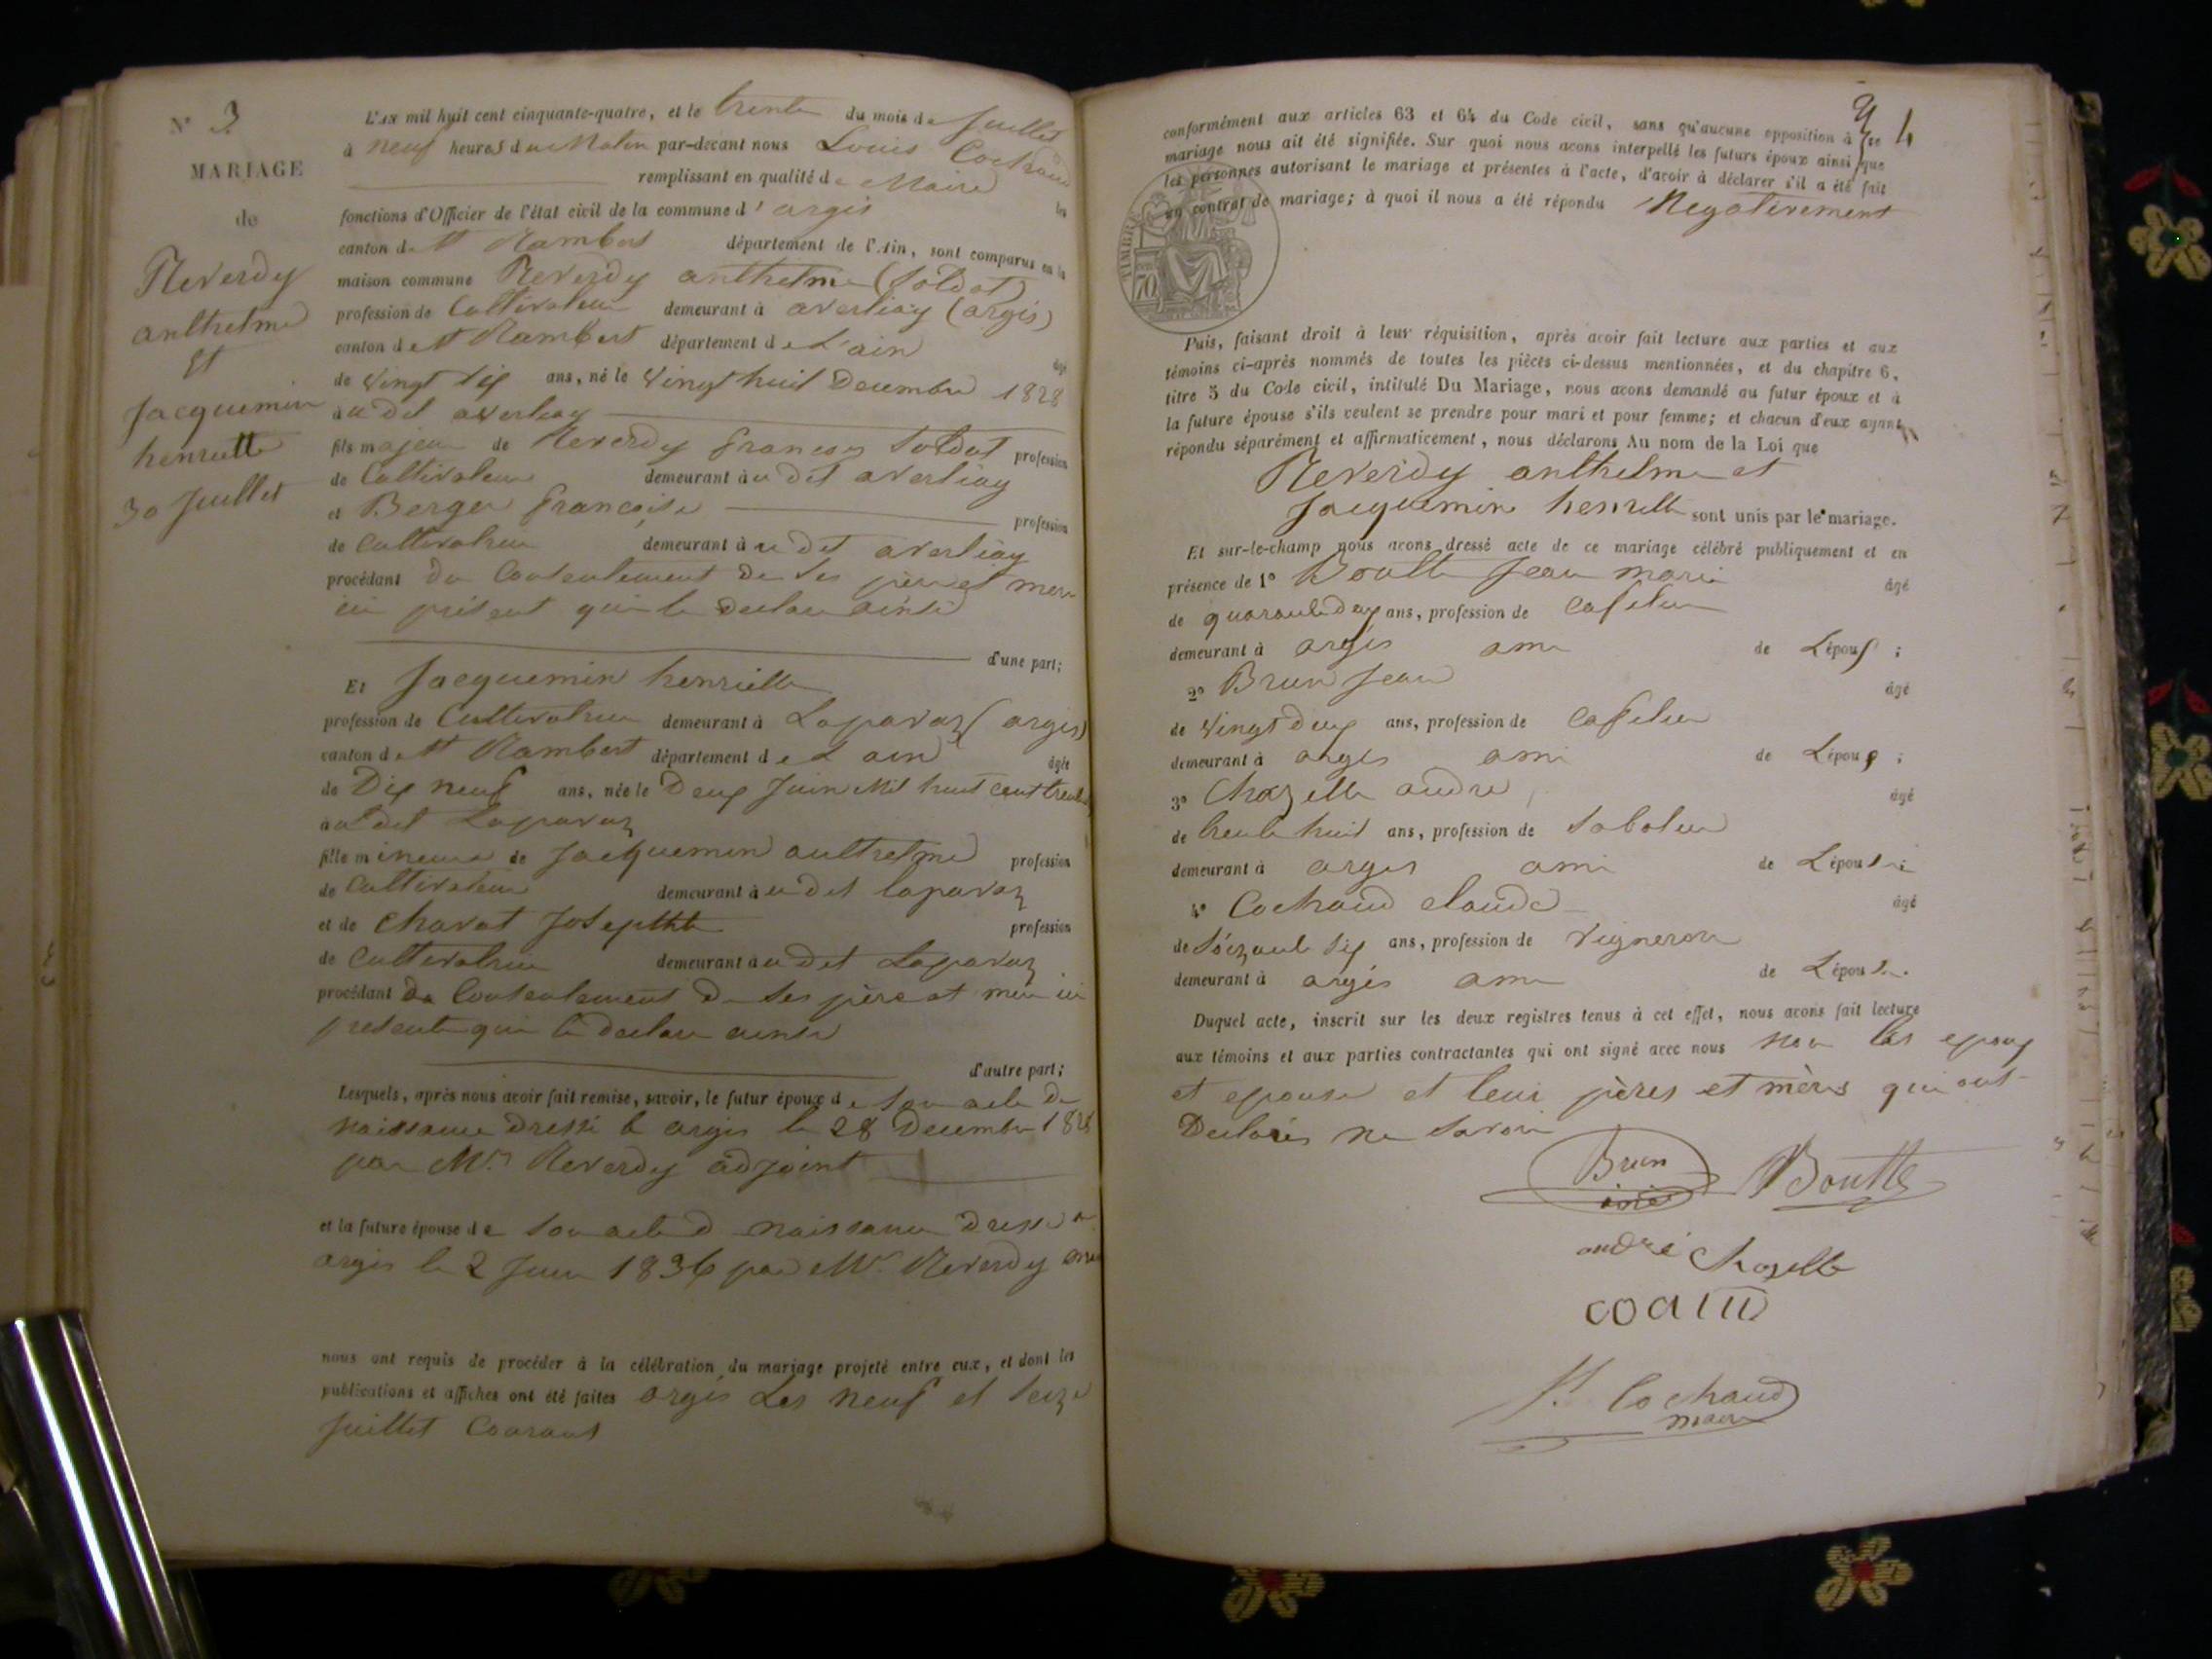 N° 3
MARIAGE
de
Reverdy
anthelme
Et
Jacquemin
henriette
30 Juillet
L'AN mil huit cent cinquante-quatre, et le trente du mois de Juillet
à neuf heures du Matin par-devant nous Louis Cochaud
remplissant en qualité de Maire les
fonctions d'Officier de l'état civil de la commune d'argis
canton de St Rambert département de l'Ain, sont comparus en la
maison commune Reverdy anthelme (Soldat)
profession de Cultivateur demeurant à averliay (argis)
canton de St Rambert département de L'ain âgé
de vingt six ans, né le vingt huit Decembre 1828
au dit averliay
fils majeur de Reverdy francois Soldat profession
de Cultivateur demeurant au dit averliay
et Berger francoise profession
de Cultivatrice demeurant au dit averliay
procédant du Consentement de ses père et mere
ici présent qui le declare ainsi
d'une part;
Et Jacquemin henriette
profession de Cultivatrice demeurant à Lapavaz (argis)
canton de St Rambert département de L'ain âgée
de Dix neuf ans, née le Deux Juin Mil huit cent trente
au dit Lapavaz
fille mineure de Jacquemin anthelme profession
de Cultivateur demeurant au dit lapavaz
et de Charat Josephte profession
de Cultivatrice demeurant au dit Lapavaz
procédant du Consentement de ses père et mère ici
présente qui le declare ainsi
d'autre part;
Lesquels, après nous avoir fait remise, savoir, le futur époux de son acte de
naissance dressé à argis le 28 Decembre 1828
par Mr Reverdy adjoint
et la future épouse de son acte de naissance dressé à
argis le 2 Juin 1836 par Mr Reverdy
nous ont requis de procéder à la célébration du mariage projeté entre eux, et dont les
publications et affiches ont été faites argis Les neuf et seize
Juillet Courant
4
conformément aux articles 63 et 64 du Code civil, sans qu'aucune opposition à ce
mariage nous ait été signifiée. Sur quoi nous avons interpellé les futurs époux ainsi que
les personnes autorisant le mariage et présentes à l'acte, d'avoir à déclarer s'il a été fait
un contrat de mariage; à quoi il nous a été répondu Negativement
TIMBRE
70
Puis, faisant droit à leur réquisition, après avoir fait lecture aux parties et aux
témoins ci-après nommés de toutes les pièces ci-dessus mentionnées, et du chapitre 6,
titre 5 du Code civil, intitulé Du Mariage, nous avons demandé au futur époux et à
la future épouse s'ils veulent se prendre pour mari et pour femme; et chacun d'eux ayant
répondu séparément et affirmativement, nous déclarons Au nom de la Loi que
Reverdy anthelme et
Jacquemin henriette sont unis par le mariage.
Et sur-le-champ nous avons dressé acte de ce mariage célébré publiquement et en
présence de 1° Boutte Jean marie âgé
de quarante deux ans, profession de Cafetier
demeurant à argis ami de L'époux ;
2° Brun Jean âgé
de vingt deux ans, profession de Cafetier
demeurant à argis ami de L'époux ;
3° Chazelle andre âgé
de trente huit ans, profession de Sabotier
demeurant à argis ami de L'épouse ;
4° Cochaud claude âgé
de Soizante six ans, profession de vigneron
demeurant à argis ami de L'épouse
Duquel acte, inscrit sur les deux registres tenus à cet effet, nous avons fait lecture
aux témoins et aux parties contractantes qui ont signé avec nous non les epoux
et epouse et leur pères et mères qui ont
Declarés ne Savoir
Brun
Boutte
andré Chazelle
Cochaud
maire